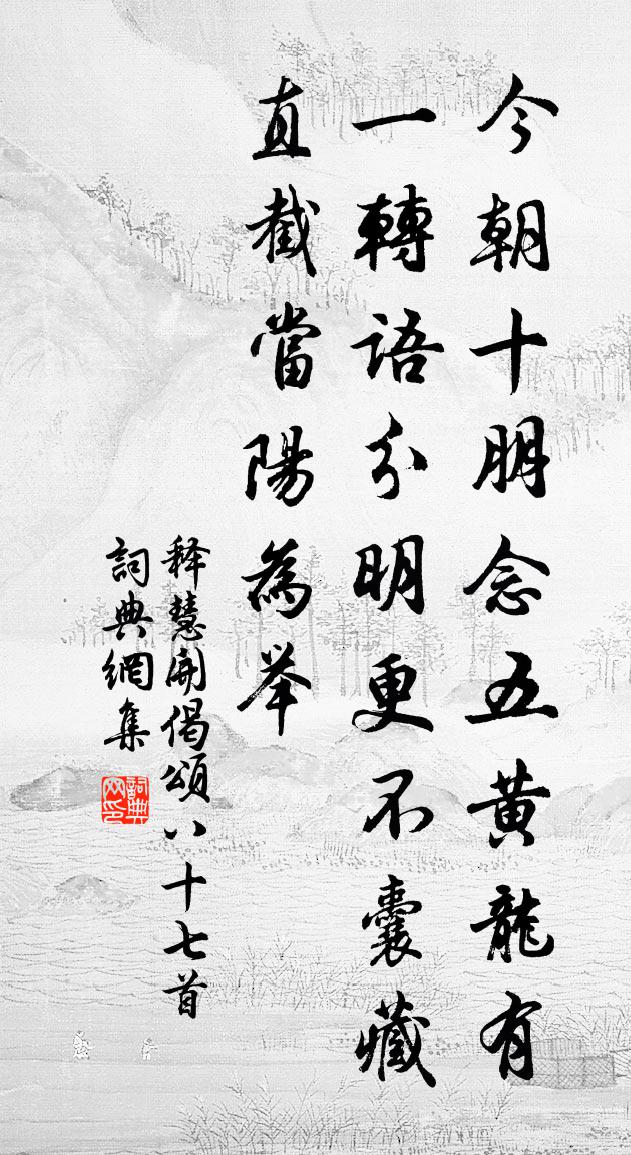 今朝十朋念五黄龍有
一轉語分明更不囊藏
直截當陽為举
释慧開偈頌八十七首
詞典網集
詞典网印